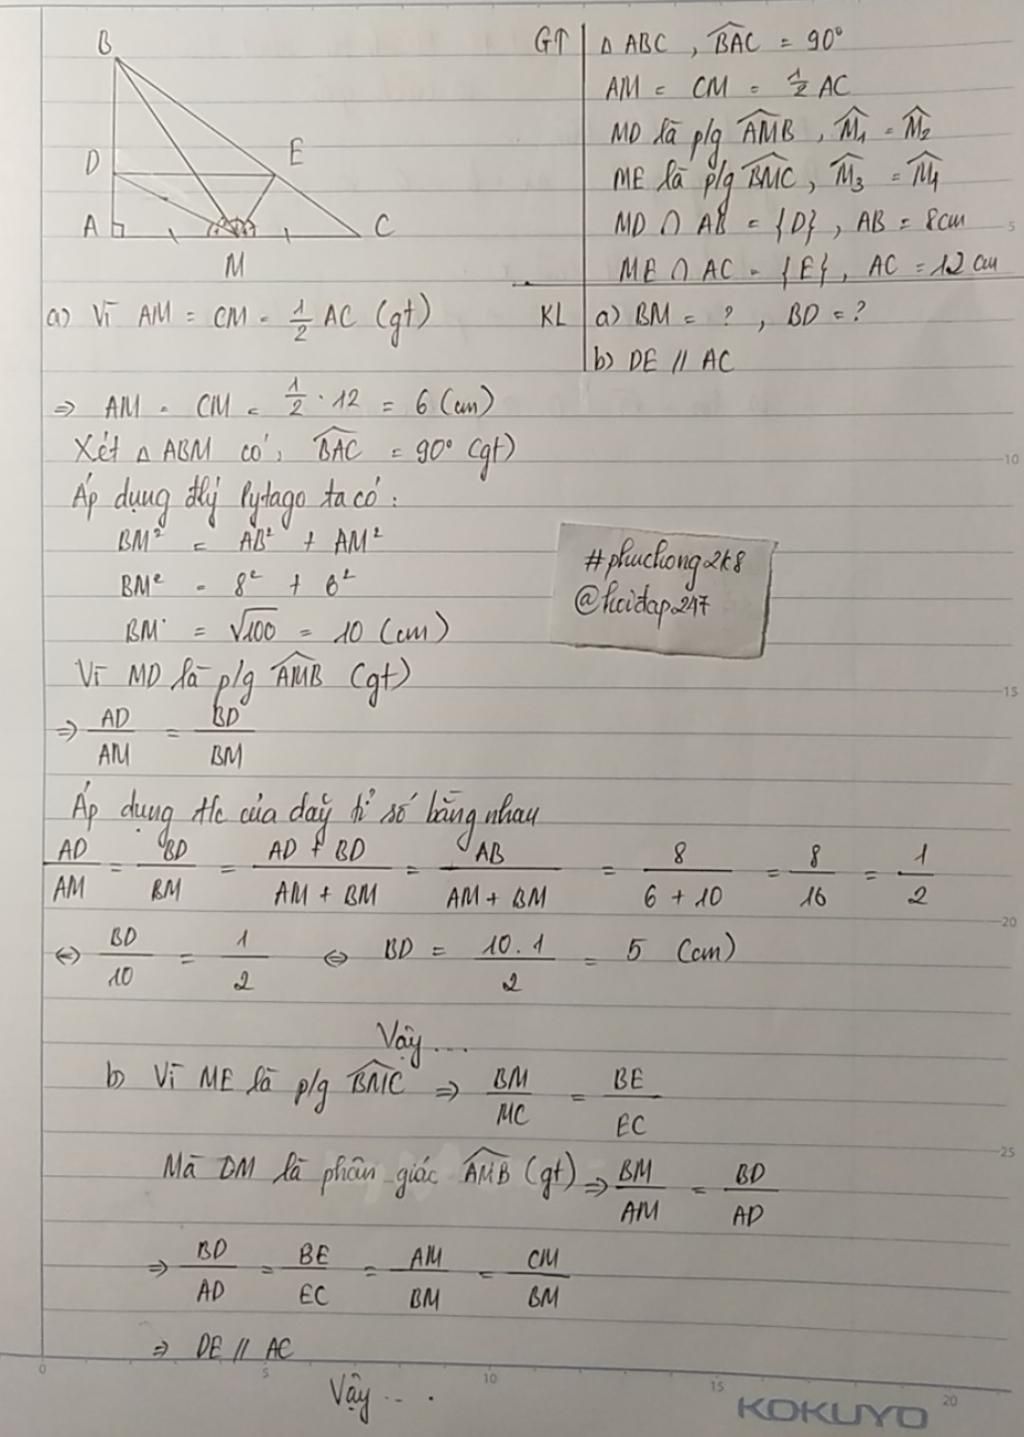 B
D
E
A
C
M
GT
Δ ABC , BAC = 90°
AM = CM = 1/2 AC
MD là p/g AMB , M1 = M2
ME là p/g BMC, M3 = M4
MD ∩ AB = {D} , AB = 8cm
ME ∩ AC = {E} , AC = 12 cm
KL
a) BM = ? , BD = ?
b) DE // AC
a) Vì AM = CM = 1/2 AC (gt)
⇒ AM = CM = 1/2 . 12 = 6 (cm)
Xét Δ ABM có: BAC = 90° (gt)
Áp dụng đlý Pytago ta có:
BM² = AB² + AM²
BM² = 8² + 6²
BM = √100 = 10 (cm)
Vì MD là p/g AMB (gt)
⇒ AD/AM = BD/BM
Áp dụng t/c của dãy tỉ số bằng nhau
AD/AM = BD/BM = AD + BD/AM + BM = AB/AM + BM = 8/6 + 10 = 8/16 = 1/2
⇔ BD/10 = 1/2 ⇔ BD = 10.1/2 = 5 (cm)
Vậy...
b) Vì ME là p/g BMC ⇒ BM/MC = BE/EC
Mà DM là phân giác AMB (gt) ⇒ BM/AM = BD/AD
⇒ BD/AD = BE/EC = AM/BM = CM/BM
⇒ DE // AC
Vậy....
#phuchong2k8
@hoidap247
5
10
15
20
25
0
5
10
15
20
KOKUYO